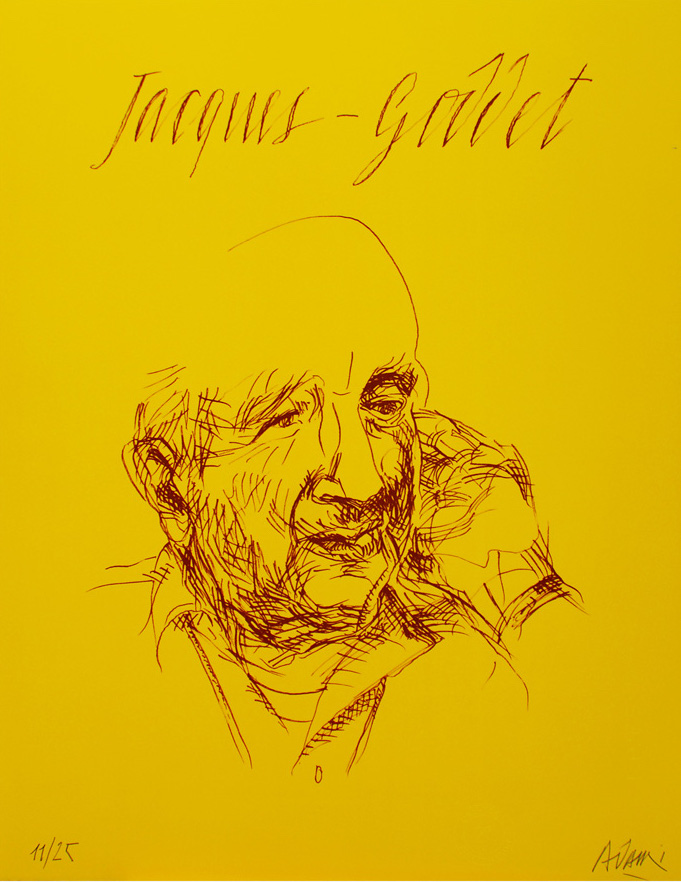 Jacques - Goddet
11/25
Adami